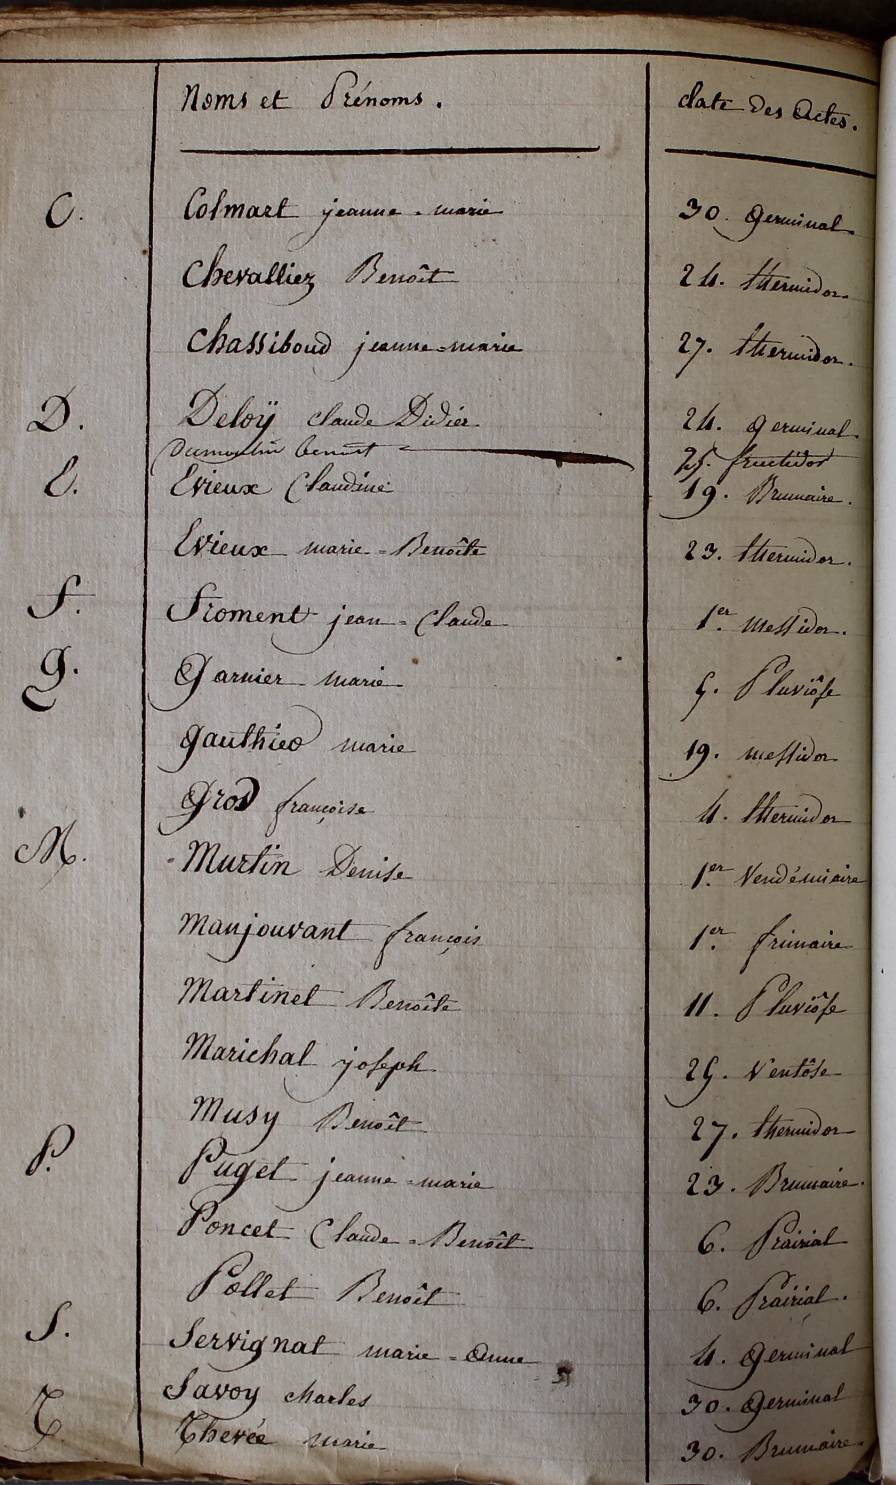 Noms et Prénoms. date des Actes.
C. Colmart jeanne-marie 30. germinal.
Chevallier Benoît 24. thermidor.
Chassiboud jeanne-marie 27. thermidor.
D. Deloÿ claude Didier 24. germinal.
Dumoulin benoit 25. fructidor
E. Evieux Claudine 19. Brumaire.
Evieux marie-Benoîte 23. thermidor.
F. Froment jean-Claude 1er. messidor.
g. Garnier marie 5. Pluviôse
gauthier marie 19. messidor
Gros françoise 4. thermidor
M. Murtin Denise 1er. Vendémiaire
Manjouvant françois 1er. frimaire
Martinet Benoîte 11. Pluviôse
Marichal joseph 25. Ventôse
Musy Benoît 27. thermidor
P. Puget jeanne-marie 23. Brumaire.
Poncet Claude-Benoît 6. Prairial
Pollet Benoît 6. Prairial.
S. Servignat marie-anne 4. Germinal
Savoy charles 30. Germinal
T. Thevée marie 30. Brumaire.